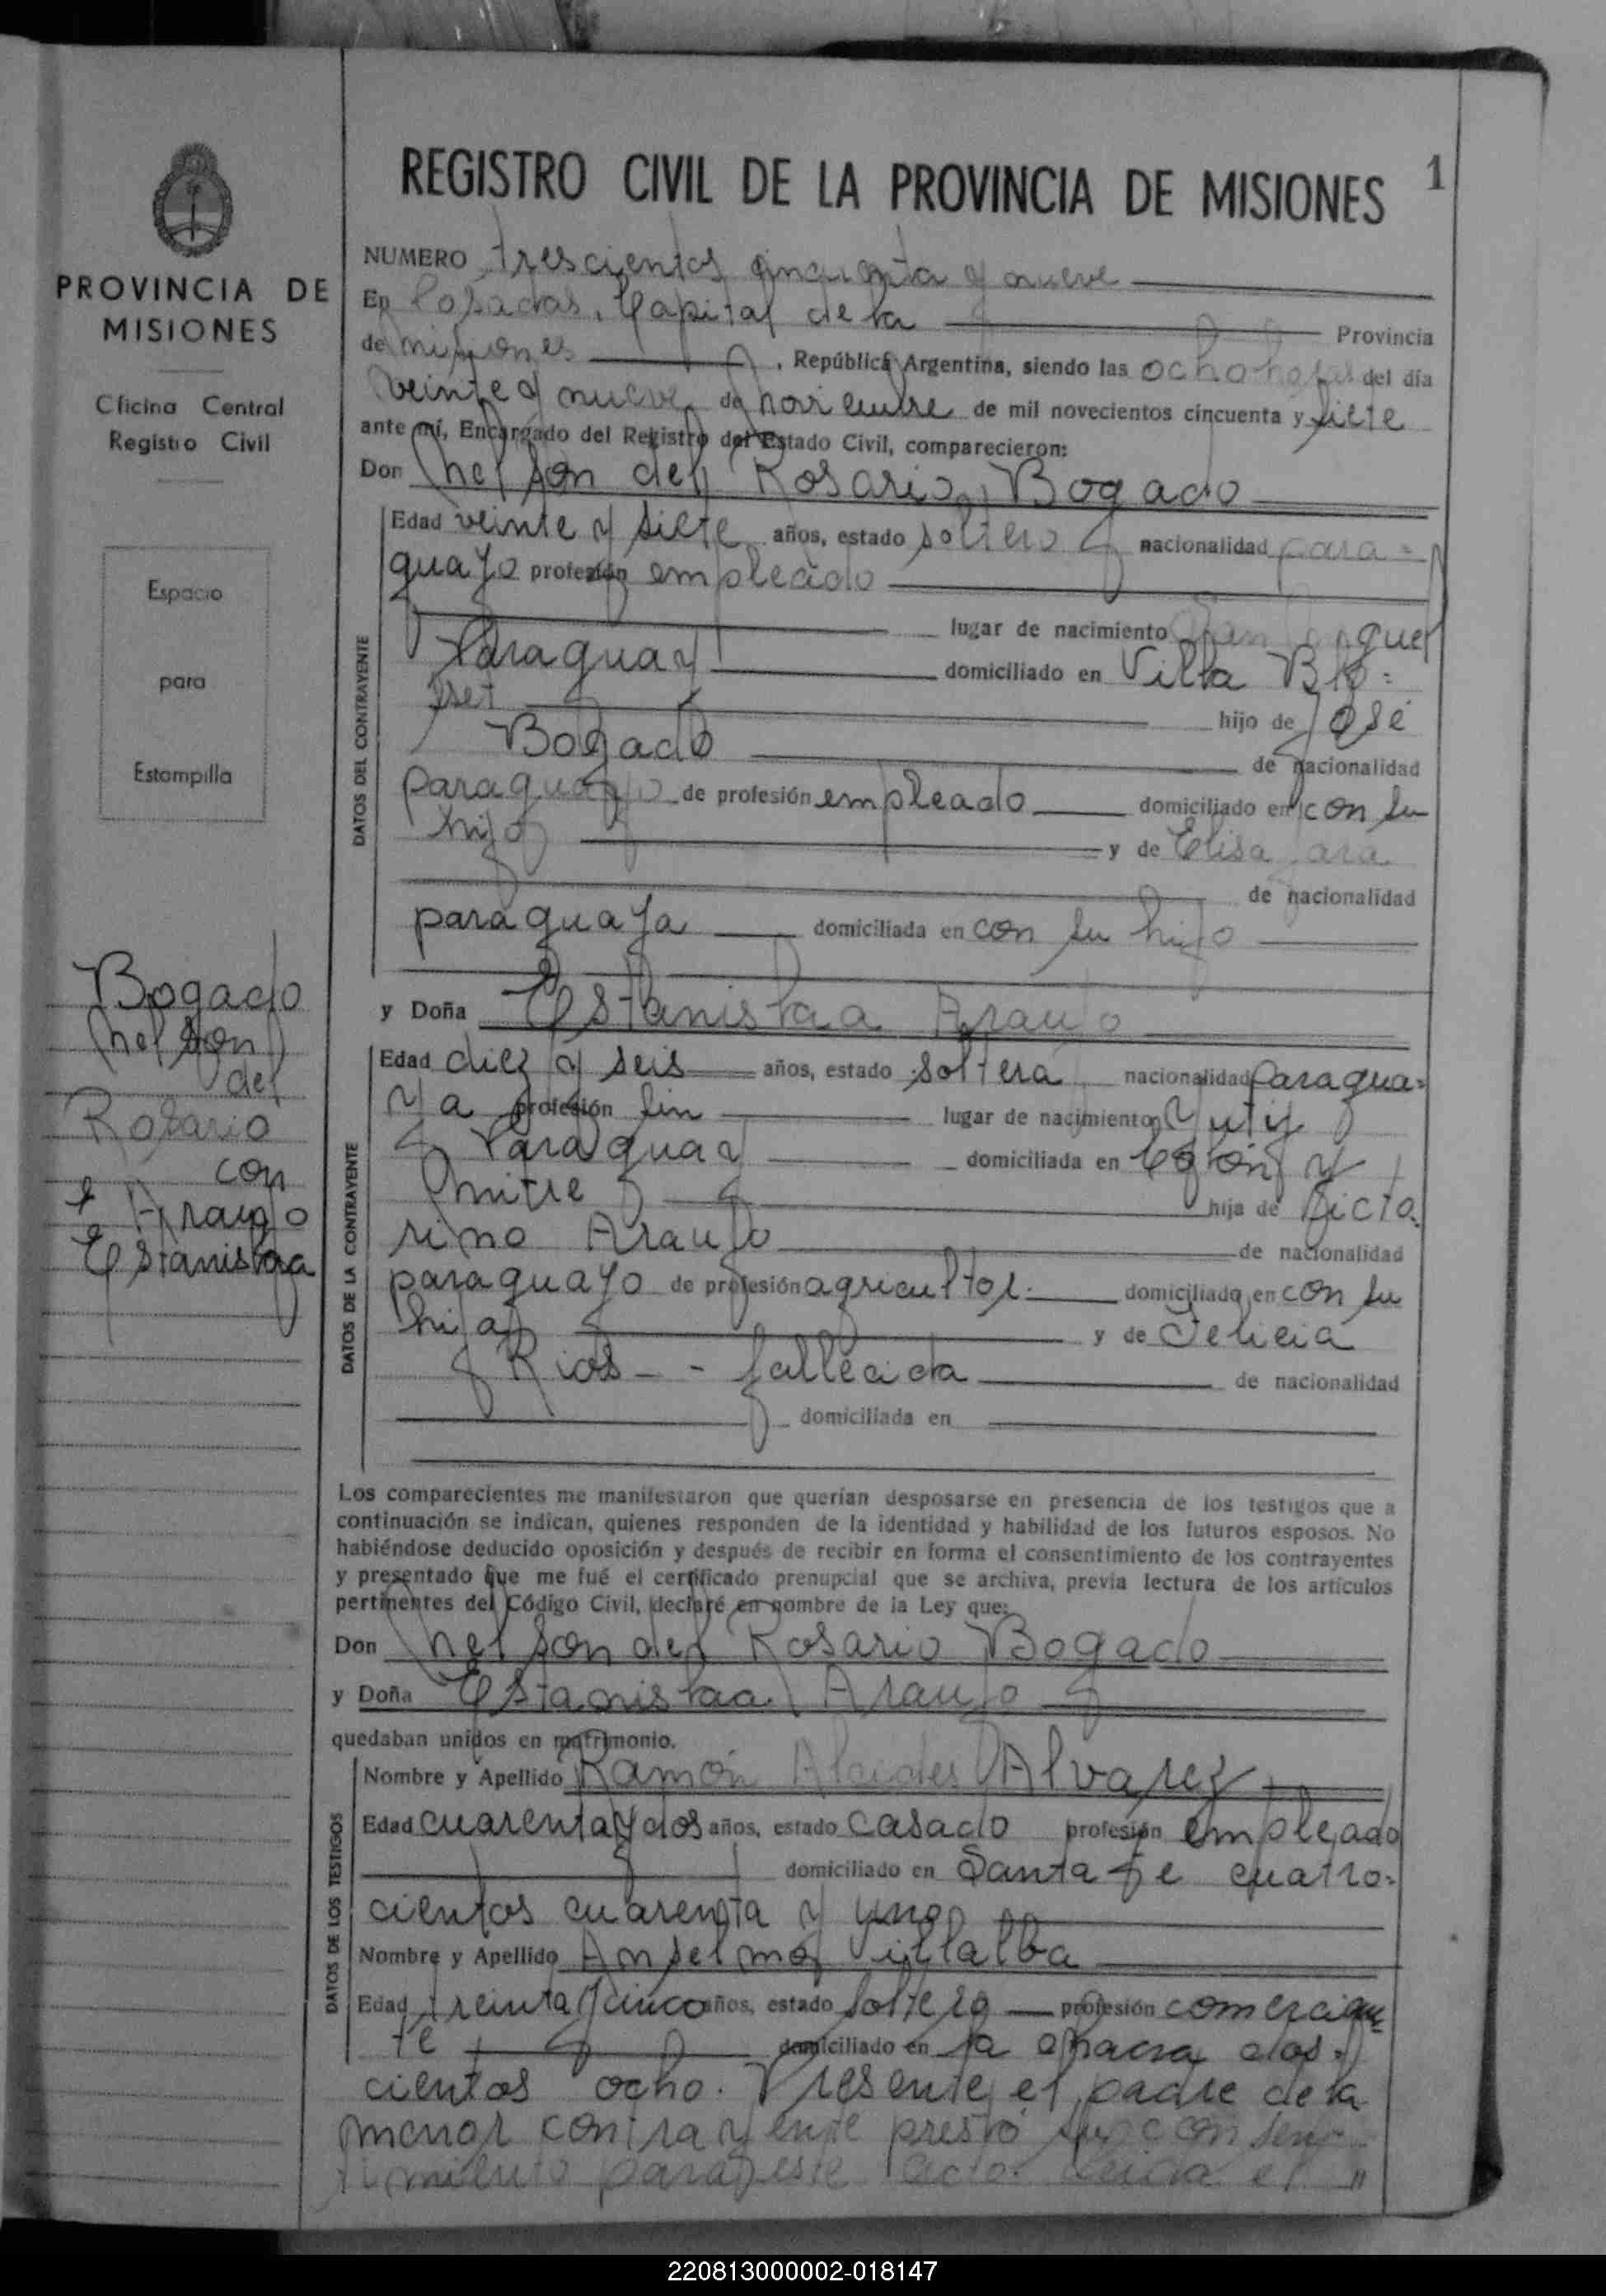 REGISTRO CIVIL DE LA PROVINCIA DE MISIONES 1
PROVINCIA DE
MISIONES
Oficina Central
Registro Civil
Espacio
para
Estampilla
Bogado
Nelson
del
Rosario
con
Araujo
Estanislaa
NUMERO trescientos cincuenta y nueve
En Posadas, Capital de la Provincia
de Misiones, República Argentina, siendo las ocho horas del día
veinte y nueve de noviembre de mil novecientos cincuenta y siete
ante mí, Encargado del Registro del Estado Civil, comparecieron:
Don Nelson del Rosario Bogado
DATOS DEL CONTRAYENTE
Edad veinte y siete años, estado soltero nacionalidad para=
guayo profesión empleado
lugar de nacimiento
Paraguay domiciliado en Villa Blo=
set hijo de José
Bogado de nacionalidad
paraguayo de profesión empleado domiciliado en con su
hijo y de Elisa Jara
de nacionalidad
paraguaya domiciliada en con su hijo
y Doña Estanislaa Araujo
DATOS DE LA CONTRAYENTE
Edad diez y seis años, estado soltera nacionalidad paragua=
ya profesión sin lugar de nacimiento Yuty
Paraguay domiciliada en Colón y
Mitre hija de Victo
rino Araujo de nacionalidad
paraguayo de profesión agricultor. domiciliado en con su
hija y de Felicia
Rios - - fallecida de nacionalidad
domiciliada en
Los comparecientes me manifestaron que querían desposarse en presencia de los testigos que a
continuación se indican, quienes responden de la identidad y habilidad de los futuros esposos. No
habiéndose deducido oposición y después de recibir en forma el consentimiento de los contrayentes
y presentado que me fué el certificado prenupcial que se archiva, previa lectura de los artículos
pertinentes del Código Civil, declaré en nombre de la Ley que:
Don Nelson del Rosario Bogado
y Doña Estanislaa Araujo
quedaban unidos en matrimonio.
DATOS DE LOS TESTIGOS
Nombre y Apellido Ramón Alcides Alvarez
Edad cuarenta y dos años, estado casado profesión empleado
domiciliado en Santa Fe cuatro=
cientos cuarenta y uno
Nombre y Apellido Anselmo Villalba
Edad treinta y cinco años, estado soltero profesión comercian=
te domiciliado en la chacra dos=
cientos ocho. Presente el padre de la
menor contrayente prestó su consen
timiento para este acto. Leida el "
220813000002-018147